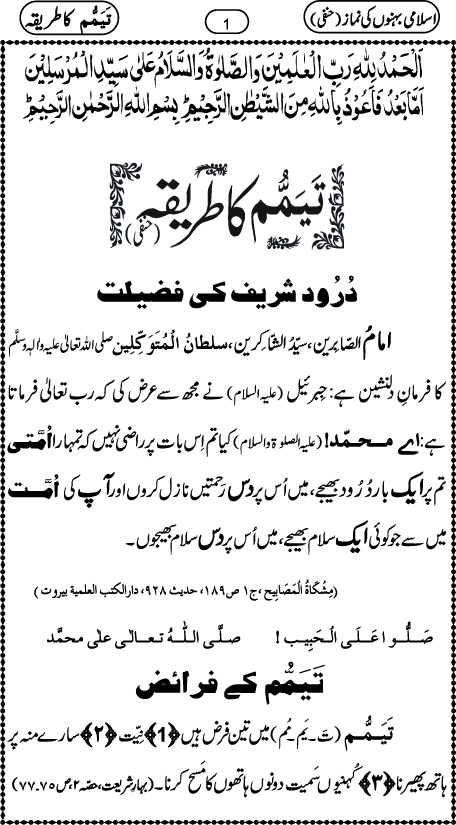 اسلامی بہنوں کی نماز (حنفی) 1 تَیَمُّم کا طریقہ
اَلْحَمْدُ لِلّٰہِ رَبِّ الْعٰلَمِیْنَ وَالصَّلٰوۃُ وَالسَّلَامُ عَلٰی سَیِّدِ الْمُرْسَلِیْنَ
اَمَّا بَعْدُ فَاَعُوْذُ بِاللّٰہِ مِنَ الشَّیْطٰنِ الرَّجِیْمِ ؕ بِسْمِ اللّٰہِ الرَّحْمٰنِ الرَّحِیْمِ ؕ
تَیَمُّم کا طریقہ (حنفی)
دُرُود شریف کی فضیلت
امامُ الصّابِرین، سیِّدُ الشّاکِرین، سلطانُ الْمُتَوَکِّلین صلی اللہ تعالیٰ علیہ واٰلہٖ وسلَّم
کا فرمانِ دلنشین ہے: جبرئیل (علیہ السلام) نے مجھ سے عرض کی کہ رب تعالیٰ فرماتا
ہے: اے محمّد! (علیہ الصلوۃ والسلام) کیا تم اِس بات پر راضی نہیں کہ تمہارا اُمَّتی
تم پر ایک بار دُرُود بھیجے، میں اُس پر دس رحمتیں نازل کروں اور آپ کی اُمَّت
میں سے جو کوئی ایک سلام بھیجے، میں اُس پر دس سلام بھیجوں۔
(مِشْکَاۃُ الْمَصَابِیح ،ج۱ ص۱۸۹، حدیث ۹۲۸، دارالکتب العلمیۃ بیروت )
صَلُّوا عَلَی الْحَبِیب ! صلَّی اللّٰہُ تعالٰی علٰی محمَّد
تَیَمُّم کے فرائض
تَیَمُّم (تَ۔یَم۔مُم) میں تین فرض ہیں ﴿1﴾ نِیّت ﴿۲﴾ سارے منہ پر
ہاتھ پھیرنا ﴿۳﴾ کُہنیوں سَمیت دونوں ہاتھوں کا مَسح کرنا۔ (بہارِ شریعت، حصّہ ۲، ص ۷۵۔۷۷)